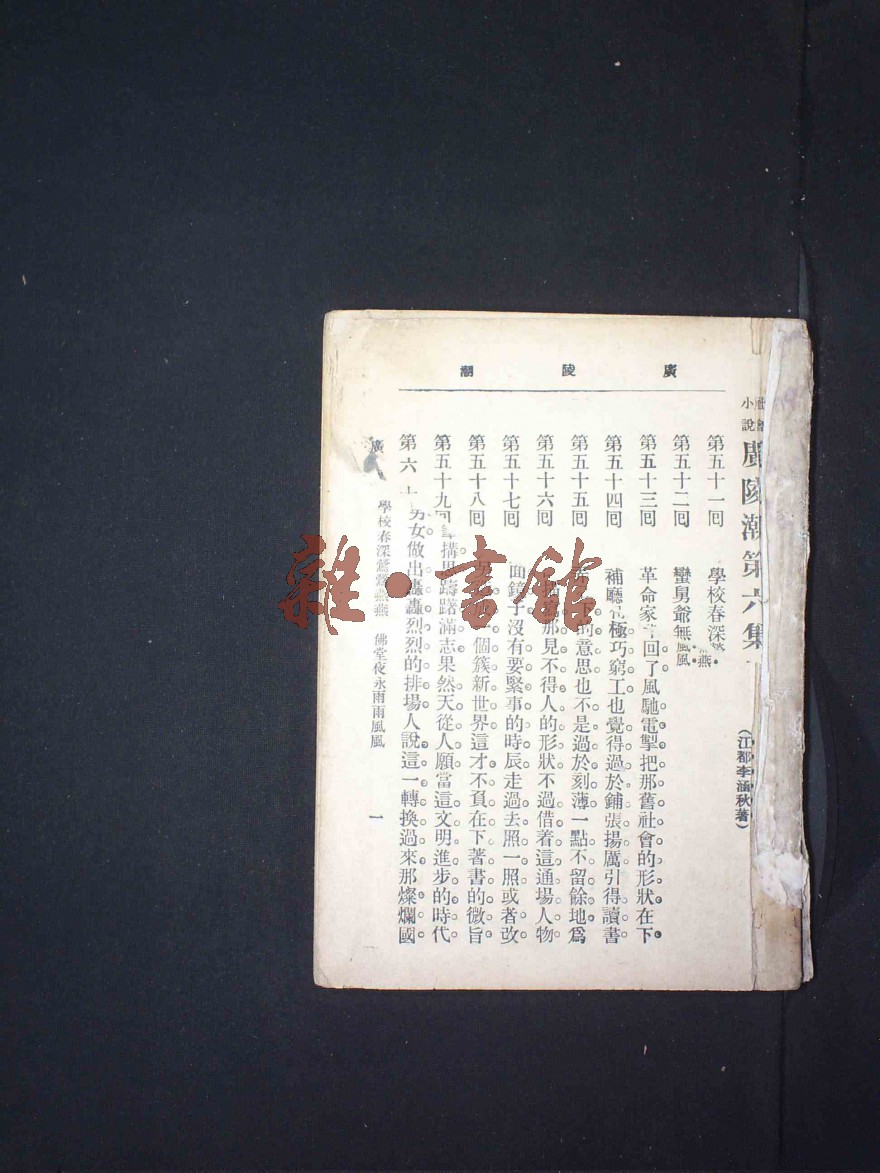 廣陵潮
社會小說 廣陵潮第六集
(江都李涵秋著)
第五十一回 學校春深 燕
第五十二回 蠻舅爺無風風
第五十三回 革命家 回了風馳電掣把那舊社會的形狀在下
第五十四回 補廳 極巧窮工也覺得過於鋪張揚厲引得讀書
第五十五回 下的意思也不是過於刻薄一點不留餘地爲
第五十六回 描寫那見不得人的形狀不過借着這通場人物
第五十七回 面鏡子沒有要緊事的時辰走過去照一照或者改
第五十八回 一個簇新世界這才不負在下著書的微旨
第五十九回 搆思躊躇滿志果然天從人願當這文明進步的時代
第六十 男女做出轟轟烈烈的排場人說這一轉換過來那燦爛國
廣
學校春深鶯鶯燕燕 佛堂夜永雨雨風風
一
雜·書館